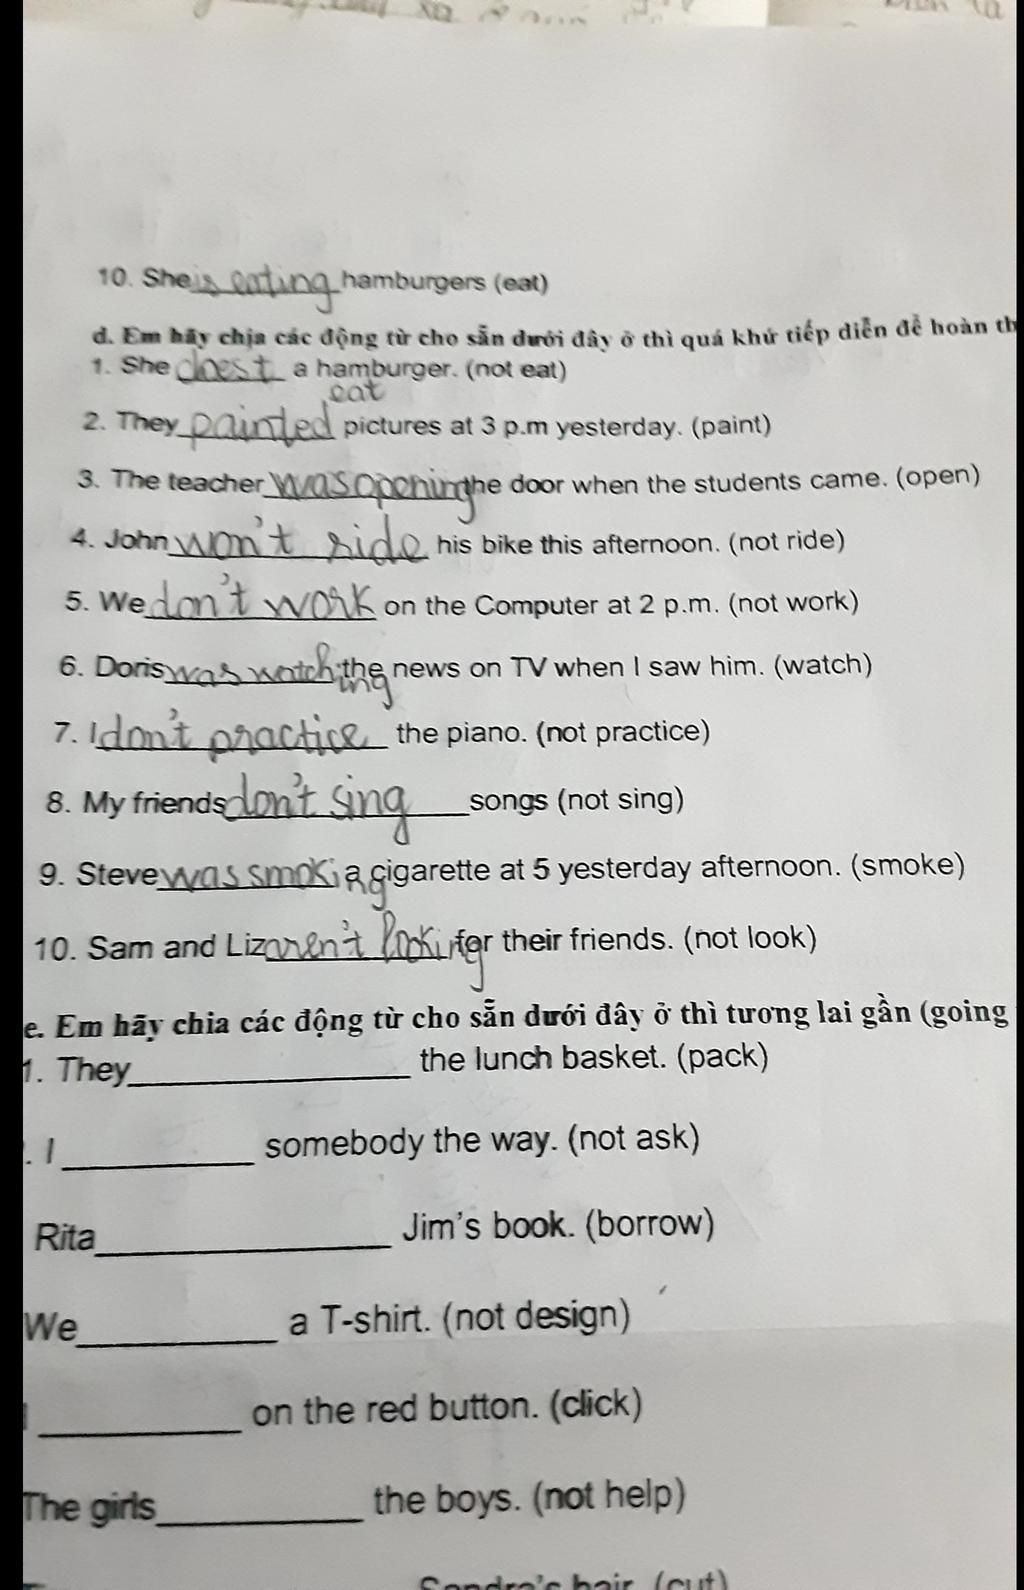 10. She is eating hamburgers (eat)
d. Em hãy chịa các động từ cho sẵn dưới đây ở thì quá khứ tiếp diễn để hoàn th
1. She doest a hamburger. (not eat)
eat
2. They painted pictures at 3 p.m yesterday. (paint)
3. The teacher was opening the door when the students came. (open)
4. John won't ride his bike this afternoon. (not ride)
5. We don't work on the Computer at 2 p.m. (not work)
6. Doris was watching the news on TV when I saw him. (watch)
7. I don't practice the piano. (not practice)
8. My friends don't sing songs (not sing)
9. Steve was smoking a cigarette at 5 yesterday afternoon. (smoke)
10. Sam and Liz aren't looking for their friends. (not look)
e. Em hãy chia các động từ cho sẵn dưới đây ở thì tương lai gần (going
1. They______________ the lunch basket. (pack)
. I__________ somebody the way. (not ask)
Rita______________ Jim's book. (borrow)
We__________ a T-shirt. (not design)
__________ on the red button. (click)
The girls__________ the boys. (not help)
Sandra's hair. (cut)